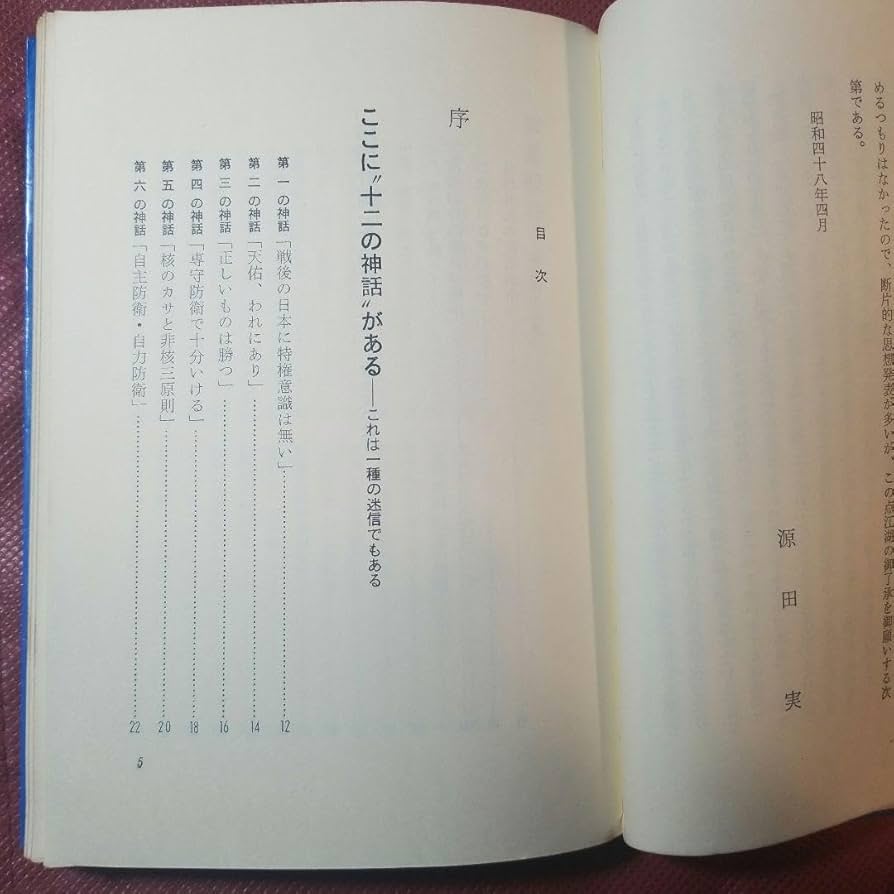 めるつもりはなかったので、断片的な思想発表が多いが、この点江湖の御了承を御願いする次
第である。
昭和四十八年四月
源田実
目次
序
ここに〝十二の神話〟がある──これは一種の迷信でもある
第一の神話「戦後の日本に特権意識は無い」……12
第二の神話「天佑、われにあり」……14
第三の神話「正しいものは勝つ」……16
第四の神話「専守防衛で十分いける」……18
第五の神話「核のカサと非核三原則」……20
第六の神話「自主防衛・自力防衛」……22
5